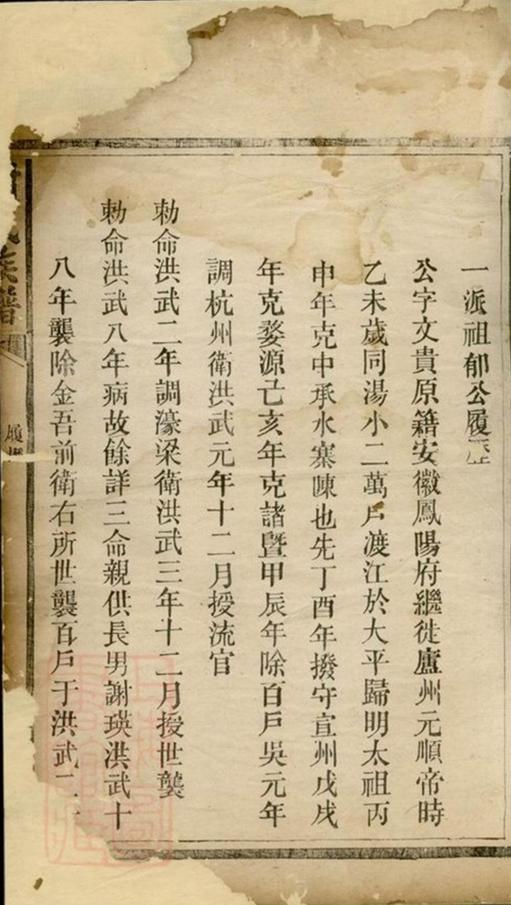 一派祖郁公履歷
公字文貴原籍安徽鳳陽府繼徙廬州元順帝時
乙未歲同湯小二萬戶渡江於大平歸明太祖丙
申年克中承水寨陳也先丁酉年撥守宣州戊戌
年克婺源己亥年克諸暨甲辰年除百戶吳元年
調杭州衛洪武元年十二月授流官
勅命洪武二年調濠梁衛洪武三年十二月授世襲
勅命洪武八年病故餘詳三命親供長男謝瑛洪武十
八年襲除金吾前衛右所世襲百戶于洪武二十
氏族譜
履歷